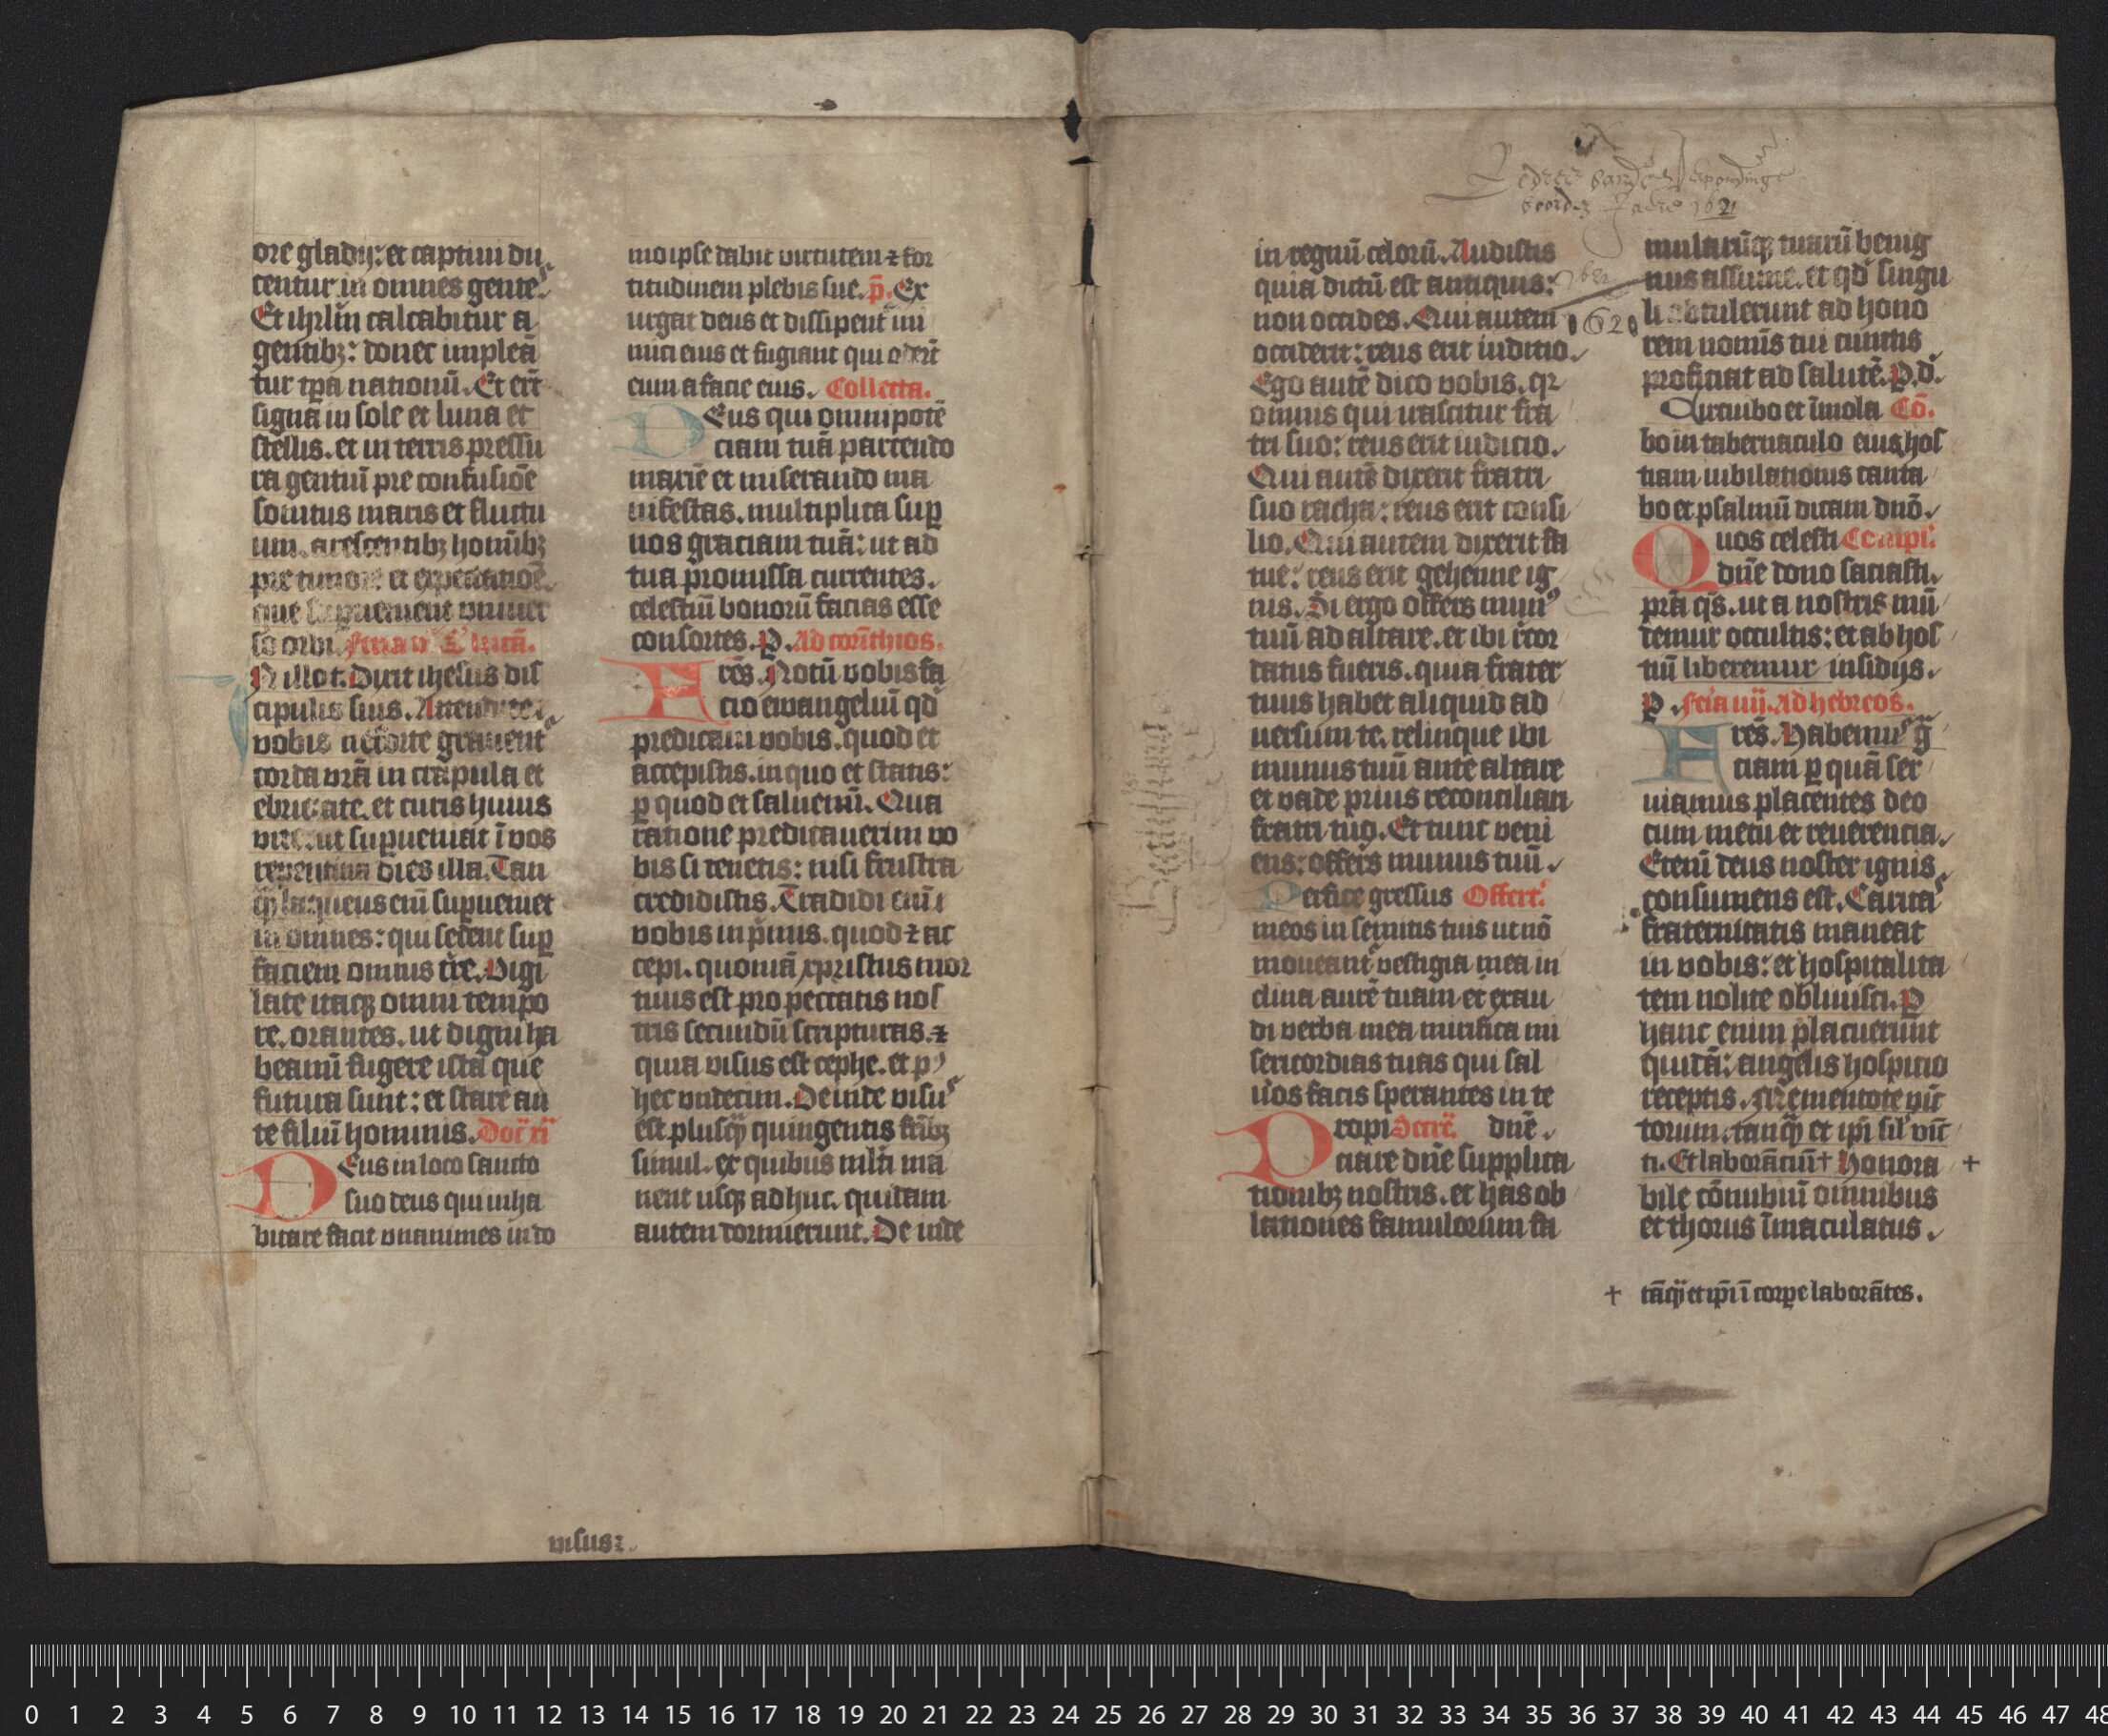 ore gladij: et captiui du
centur in omnes gente
Et ihrl̄m calcabitur a
gentibꝫ: donec impleā
tur tp̄a nationū. Et erūt
signa in sole et luna et
stellis. et in terris pressu
ra gentiū pre confusiōe
sonitus maris et fluctu
um. arescentibꝫ hominibꝫ
pre timore et expectatiōe
que superuenient vniuer
so orbi.
N illo t. Dixit ihesus dis
cipulis suis. Attendite
vobis ne forte grauent
corda vrā in crapula et
ebrietate. et curis huius
vite. ut supueniat ī vos
repentina dies illa. Tan
qͣ̄ laqueus eni supueniet
in omnes: qui sedent sup
faciem omnis tr̄e. Vigi
late itaqꝫ omni tempo
re. orantes. ut digni ha
beami fugere ista que
futura sunt: et stare an
te filiū hominis. Doc̄ xi
Deus in loco sancto
suo deus qui inha
bitare facit vnanimes in do
mo ipse dabit virtutem ⁊ for
titudinem plebis sue. p̄. Ex
urgat deus et dissipent ini
mici eius et fugiant qui oderūt
eum a facie eius. Collecta.
Deus qui omnipotē
ciam tuā parcendo
maxīe et miserando ma
nifestas. multiplica sup
nos graciam tuā: ut ad
tua promissa currentes.
celestiū bonorū facias esse
consortes. P. Ad corīthios.
Frēs. Notū vobis fa
cio ewangeliū qd
predicaui vobis. quod et
accepistis. in quo et statis:
ꝑ quod et saluemī. Qua
ratione predicauerim vo
bis si tenetis: nisi frustra
credidistis. Tradidi enī
vobis inp̄mis. quod ⁊ ac
cepi. quoniā xpristus mor
tuus est pro peccatis nos
tris secundū scripturas. ⁊
quia visus est cephe. et p
hec vndecim. Deinde visu
est plusqͣ̄ quingentis fribꝫ
simul. ex quibus mlti ma
nent usqꝫ adhuc. quidam
autem dormierunt. De inde
visus:
1621
in regnū celorū. Audistis
quia dictū est antiquis:
non occides. Qui autem
1620
occiderit: reus erit iudicio.
Ego autē dico vobis. qr
omnis qui irascitur fra
tri suo: reus erit iudicio.
Qui autē dixerit fratri
suo racha: reus erit consi
lio. Qui autem dixerit fa
tue: reus erit gehenne ig
nis. Si ergo offers mun
tuū ad altare. et ibi rcor
datus fueris. quia frater
tuus habet aliquid ad
uersum te. relinque ibi
munus tuū ante altare
et vade prius reconciliari
fratri tuo. Et tunc veni
ens: offers munus tuū.
Perfice gressus Offert.
meos in semitis tuis ut nō
moueant vestigia mea in
clina aurē tuam et exau
di verba mea mirifica mi
sericordias tuas qui sal
uos facis sperantes in te
Propi Secrē. dūe.
ciare dn̄e supplica
tionibꝫ nostris. et has ob
lationes famulorum fa
mularūqꝫ tuarū benig
nus assume. et qd singu
li obtulerunt ad hono
rem nomīs tui cunctis
proficiat ad salutē. P. d.
Circuibo et īmola Cō.
bo in tabernaculo eius hos
tiam iubilationis canta
bo et psalmū dicam dnō.
Quos celesti Compl.
dn̄e dono saciasti.
prā qs̄. ut a nostris mū
demur occultis: et ab hos
tiū liberemur insidijs.
P. feria iiij. Ad hebreos.
Frēs. Habemus g̃
ciam ꝑ quā ser
uiamus placentes deo
cum metu et reuerencia.
Etenī deus noster ignis
consumens est. Carita
fraternitatis maneat
in vobis: et hospitalita
tem nolite obliuisci. P
hanc enim placuerunt
quidā: angelis hospicio
receptis. Mementote vīc
torum. tanqͣ̄ et ipi sil' vīc
ti. Et laborāciū✝ Honora ✝
bile cōnubiū omnibus
et thorus īmaculatus.
✝ tāqͣ̄ et ip̄i ī corpe laborātes.
0 1 2 3 4 5 6 7 8 9 10 11 12 13 14 15 16 17 18 19 20 21 22 23 24 25 26 27 28 29 30 31 32 33 34 35 36 37 38 39 40 41 42 43 44 45 46 47 48